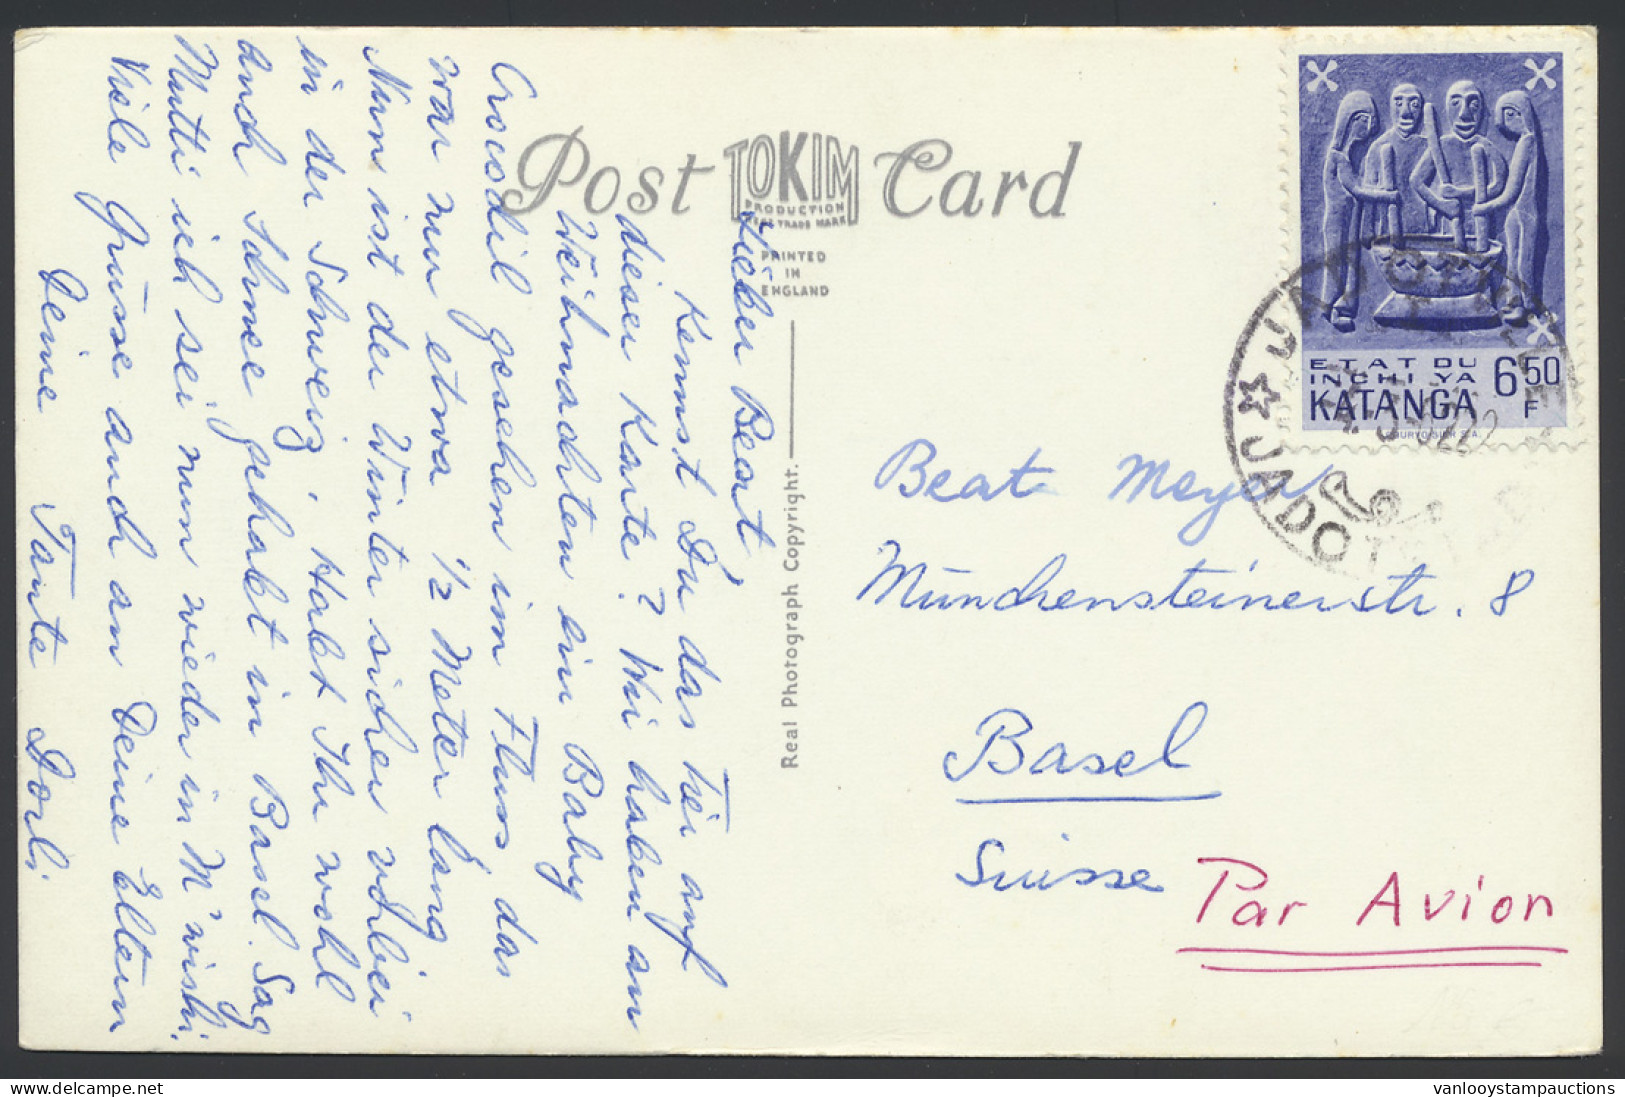 Post Card
TOKIM
PRODUCTION
TRADE MARK
PRINTED
IN
ENGLAND
Real Photograph Copyright.
Lieber Beat
Kennst Du das Tier auf
dieser Karte? Wir haben am
Weihnachten ein Baby
Crocodil gesehen im Fluss, das
war nur etwa 1/2 Meter lang
Nun ist der Winter sicher vorbei
in der Schweiz, Habt Ihr wohl
auch Schnee gehabt in Basel. Sag
Mutti ich sei nun wieder in M'wishi.
Viele Grüsse auch an Deine Eltern
Deine Tante Dorli
ETAT DU
INCHI YA
KATANGA
6 50
F
JADOTVILLE
JADOTVILLE
Beat Meyer
Münchensteinerstr. 8
Basel
Suisse
Par Avion
vanlooystampauctions